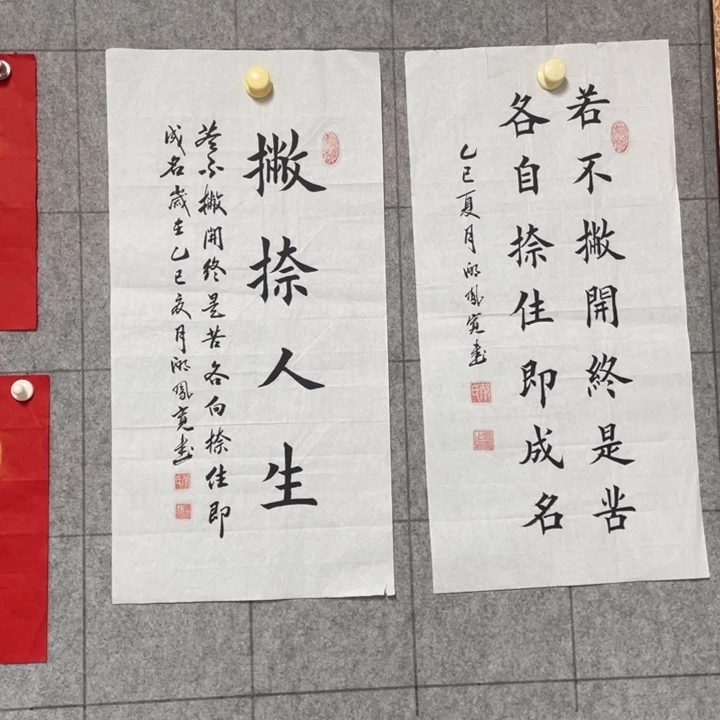 撇捺人生
若不撇開終是苦各自捺住即
成名歲在乙巳夏月鳳寬書
若不撇開終是苦
各自捺住即成名
乙巳夏月鳳寬書